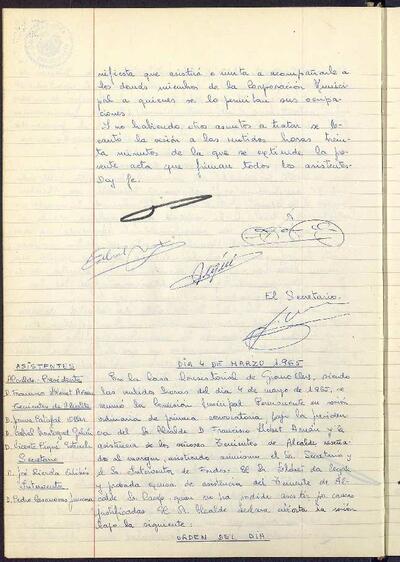 nifiesta que asistirá e invita a acompañarle a
los demás miembros de la Corporación Munici-
pal a quienes se lo permitan sus ocupa-
ciones.
Y no habiendo otros asuntos a tratar se le-
vantó la sesión a las veintidos horas trein-
ta minutos de la que se extiende la pre-
sente acta que firman todos los asistentes.
Doy fe.
El Secretario.
ASISTENTES
Alcalde-Presidente
D. Francisco Llobet Arnan
Tenientes de Alcalde
Secretario
Interventor
DIA 4 DE MARZO 1965
En la Casa Consistorial de Granollers, siendo
las veintidos horas del dia 4 de marzo de 1965, se
reunió la Comisión Municipal Permanente en sesión
ordinaria de primera convocatoria bajo la presiden-
cia del Sr. Alcalde D. Francisco Llobet Arnán y la
asistencia de los señores Tenientes de Alcalde reseña-
dos al margen, asistiendo asimismo el Sr. Secretario y
el Sr. Interventor de Fondos.
y probada causa de asistencia del Teniente de Al-
calde quien no ha podido asistir por causas
justificadas. El Sr. Alcalde declara abierta la sesión
bajo la siguiente:
ORDEN DEL DIA